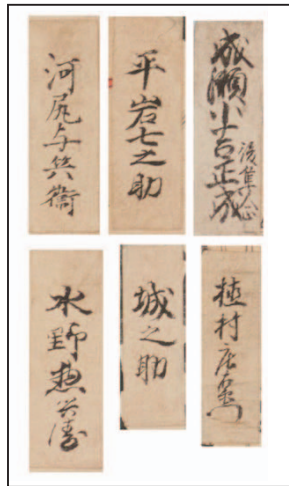 成瀬小吉正成
後隼人
平岩七之助
河尻与兵衛
植村
城之助
水野惣兵衛